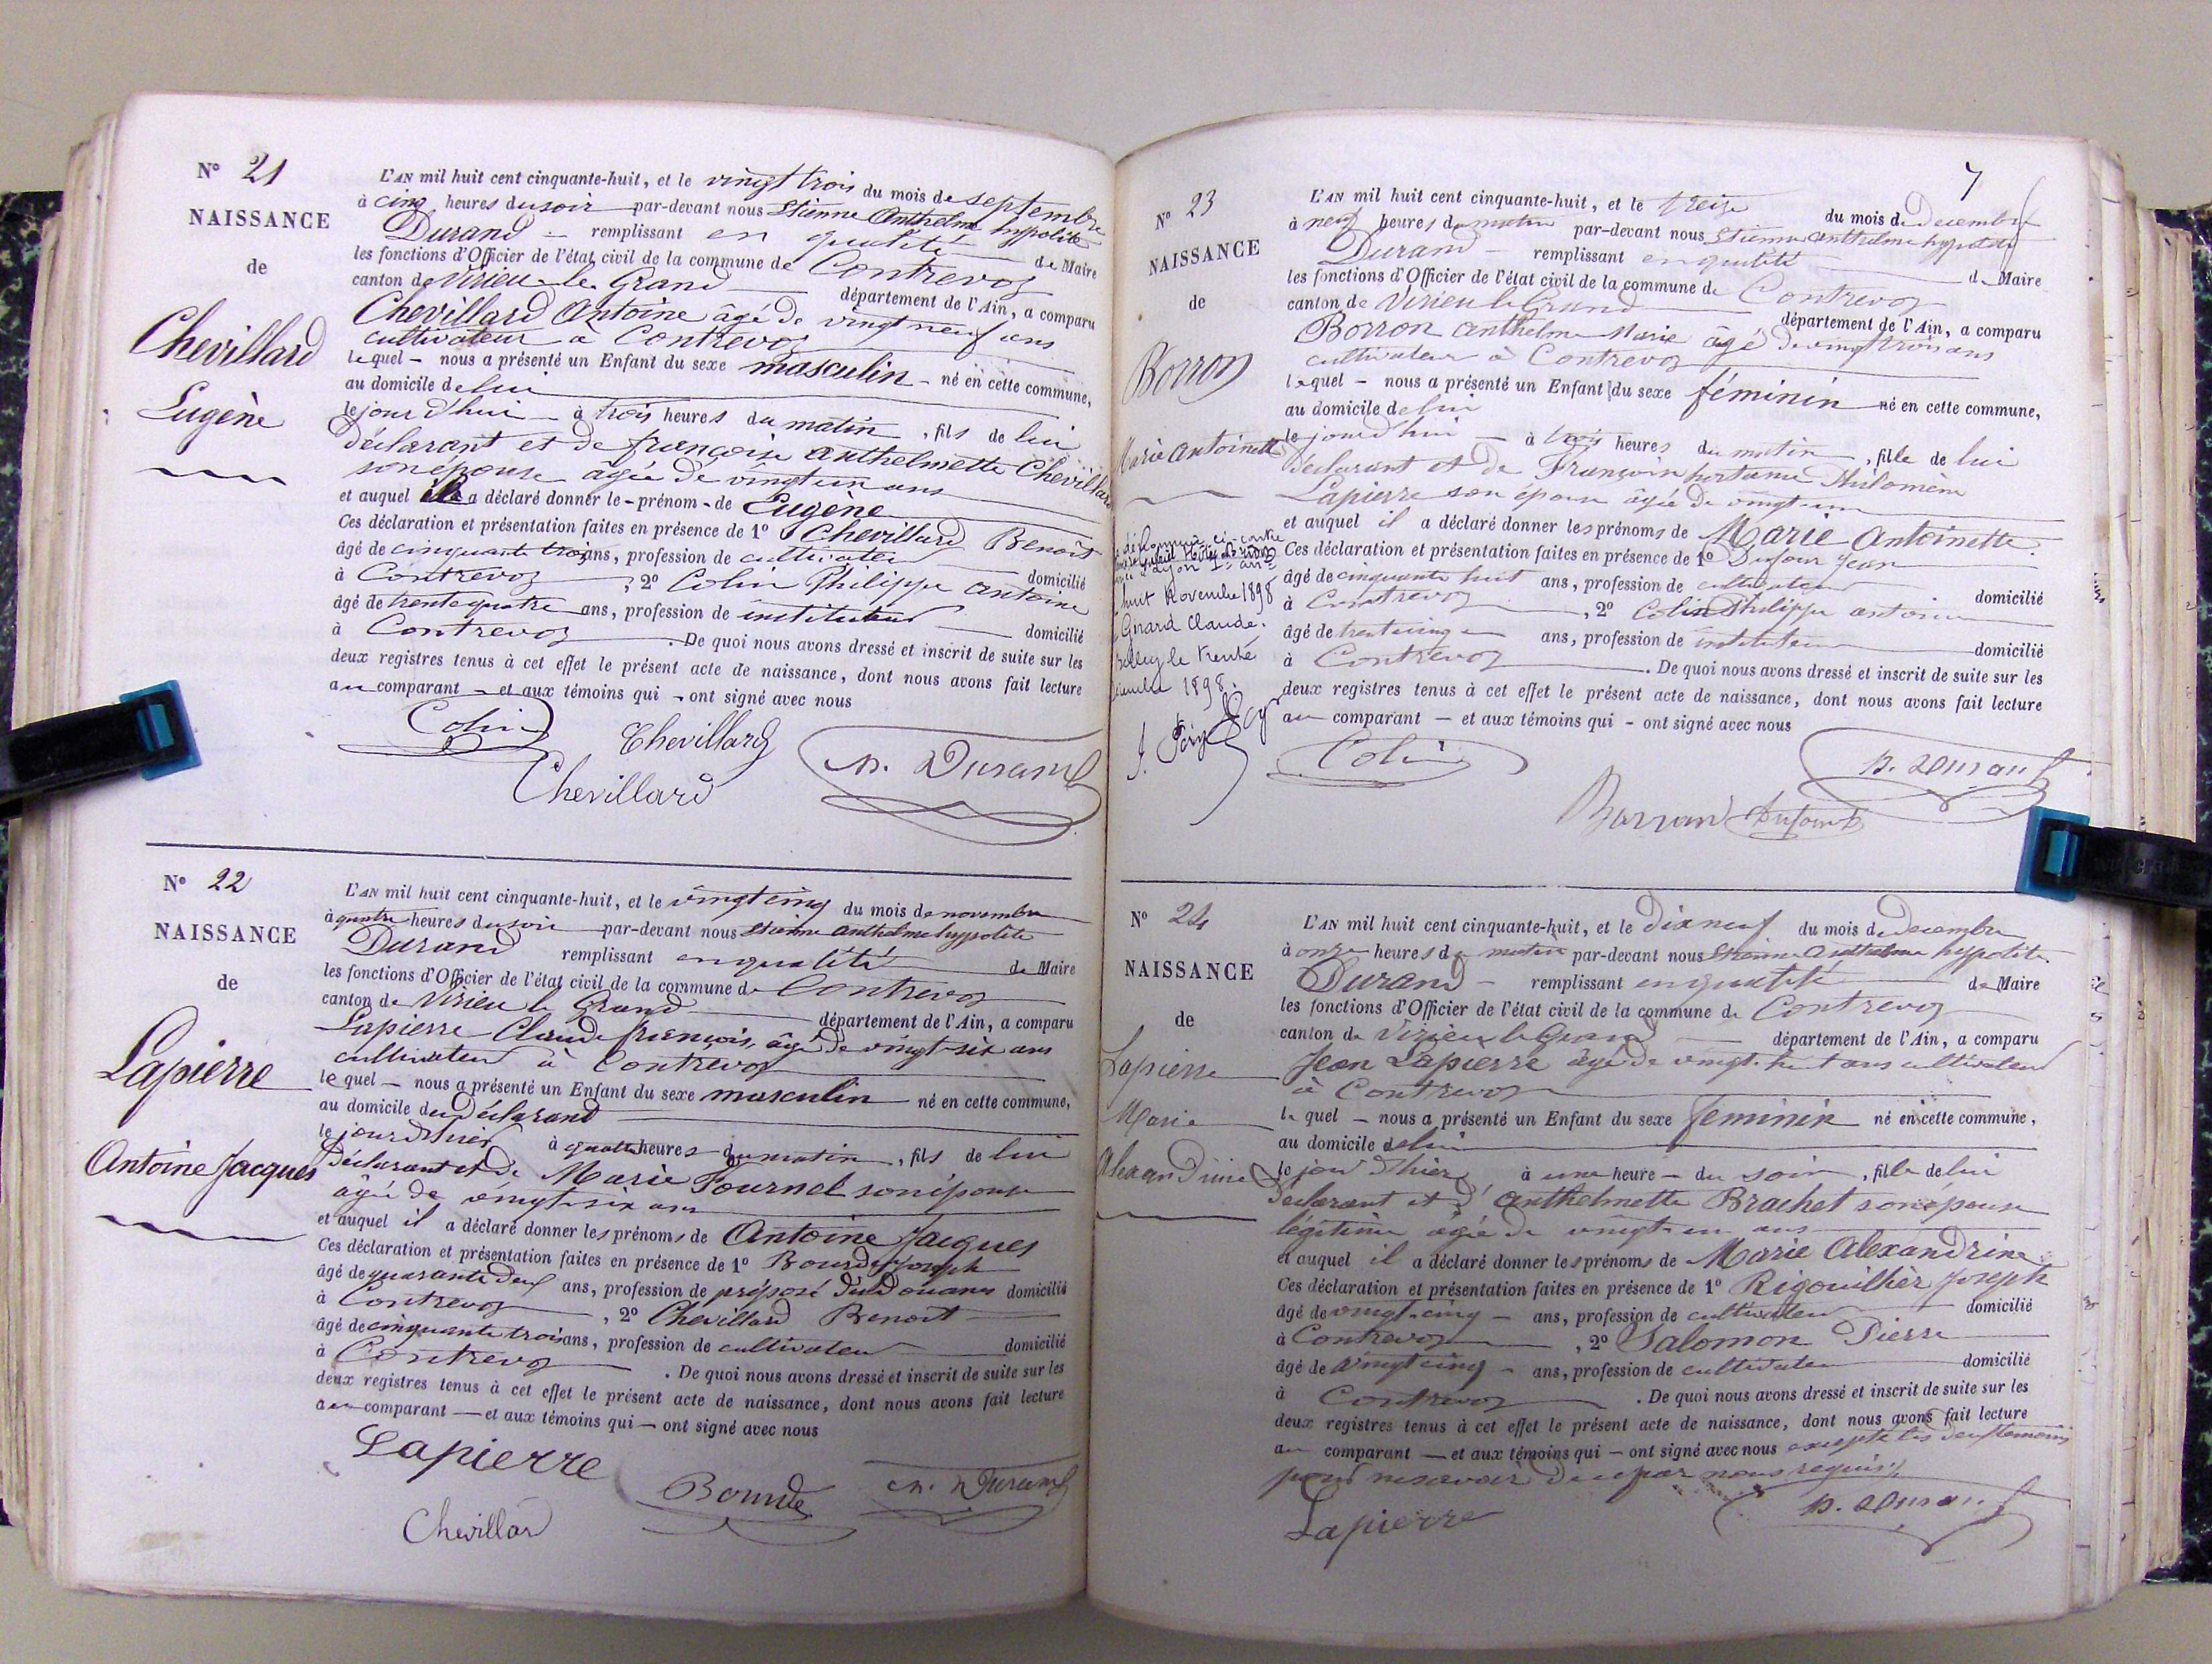 N° 21
NAISSANCE
de
Chevillard
Eugène
L'AN mil huit cent cinquante-huit, et le vingt trois du mois de septembre
à cinq heures du soir par-devant nous Etienne Anthelme hypolite
Durand - remplissant en qualité de Maire
les fonctions d'Officier de l'état civil de la commune de Contrevoz
canton de Virieu le Grand département de l'Ain, a comparu
Chevillard Antoine âgé de vingt neuf ans
cultivateur à Contrevoz
lequel - nous a présenté un Enfant du sexe masculin - né en cette commune,
au domicile de lui
le jour d'hui à trois heures du matin, fils de lui
déclarant et de françoise Anthelmette Chevillard
son épouse âgée de vingt un ans
et auquel il a déclaré donner le - prénom - de Eugène
Ces déclaration et présentation faites en présence de 1° Chevillard Benoit
âgé de cinquante trois ans, profession de cultivateur domicilié
à Contrevoz, 2° Colin Philippe antoine
âgé de trente quatre ans, profession de instituteur domicilié
à Contrevoz. De quoi nous avons dressé et inscrit de suite sur les
deux registres tenus à cet effet le présent acte de naissance, dont nous avons fait lecture
au comparant - et aux témoins qui - ont signé avec nous
Colin Chevillard
Chevillard Durand
N° 22
NAISSANCE
de
Lapierre
Antoine Jacques
L'AN mil huit cent cinquante-huit, et le vingt cinq du mois de novembre
à quatre heures du soir par-devant nous Etienne anthelme hypolite
Durand remplissant en qualité de Maire
les fonctions d'Officier de l'état civil de la commune de Contrevoz
canton de Virieu le Grand département de l'Ain, a comparu
Lapierre Claude françois âgé de vingt-six ans
cultivateur à Contrevoz
lequel - nous a présenté un Enfant du sexe masculin né en cette commune,
au domicile du déclarand
le jour d'hier à quatre heures du matin, fils de lui
déclarant et de Marie Fournel son épouse
âgée de vingt-six ans
et auquel il a déclaré donner les prénoms de Antoine Jacques
Ces déclaration et présentation faites en présence de 1° Bourde Joseph
âgé de quarante deux ans, profession de préposé des douanes domicilié
à Contrevoz, 2° Chevillard Benoit
âgé de cinquante trois ans, profession de cultivateur domicilié
à Contrevoz. De quoi nous avons dressé et inscrit de suite sur les
deux registres tenus à cet effet le présent acte de naissance, dont nous avons fait lecture
au comparant - et aux témoins qui - ont signé avec nous
Lapierre
Bourde Durand
Chevillard
7
N° 23
NAISSANCE
de
Borron
Marie Antoinette
huit Novembre 1898
Gérard Claude.
Belley le trente
1898.
L'AN mil huit cent cinquante-huit, et le treize du mois de Decembre
à neuf heures du matin par-devant nous Etienne anthelme hypolite
Durand - remplissant en qualité de Maire
les fonctions d'Officier de l'état civil de la commune de Contrevoz
canton de Virieu le Grand département de l'Ain, a comparu
Borron anthelme Marie âgé de vingt trois ans
cultivateur à Contrevoz
lequel - nous a présenté un Enfant du sexe féminin né en cette commune,
au domicile de lui
le jour d'hui - à trois heures du matin, fille de lui
déclarant et de Philomène
Lapierre son épouse âgée de vingt un
et auquel il a déclaré donner les prénoms de Marie Antoinette.
Ces déclaration et présentation faites en présence de 1° Dufour Jean
âgé de cinquante huit ans, profession de cultivateur domicilié
à Contrevoz, 2° Colin Philippe antoine
âgé de trente cinq ans, profession de instituteur domicilié
à Contrevoz. De quoi nous avons dressé et inscrit de suite sur les
deux registres tenus à cet effet le présent acte de naissance, dont nous avons fait lecture
au comparant - et aux témoins qui - ont signé avec nous
Colin Durand
Borron Dufour
N° 24
NAISSANCE
de
Lapierre
Marie
Alexandrine
L'AN mil huit cent cinquante-huit, et le dix neuf du mois de Decembre
à onze heures du matin par-devant nous Etienne Anthelme hypolite
Durand - remplissant en qualité de Maire
les fonctions d'Officier de l'état civil de la commune de Contrevoz
canton de Virieu le Grand département de l'Ain, a comparu
Jean Lapierre âgé de vingt-huit ans cultivateur
à Contrevoz
lequel - nous a présenté un Enfant du sexe féminin né en cette commune,
au domicile de lui
le jour d'hier à une heure - du soir, fille de lui
déclarant et d'anthelmette Brachet son épouse
légitime âgée de vingt-un ans
et auquel il a déclaré donner les prénoms de Marie Alexandrine
Ces déclaration et présentation faites en présence de 1° Rigouillier Joseph
âgé de vingt-cinq - ans, profession de cultivateur domicilié
à Contrevoz, 2° Salomon Pierre
âgé de vingt cinq - ans, profession de cultivateur domicilié
à Contrevoz. De quoi nous avons dressé et inscrit de suite sur les
deux registres tenus à cet effet le présent acte de naissance, dont nous avons fait lecture
au comparant - et aux témoins qui - ont signé avec nous excepté les deux témoins
pour ne savoir de ce par nous requis
Lapierre Durand